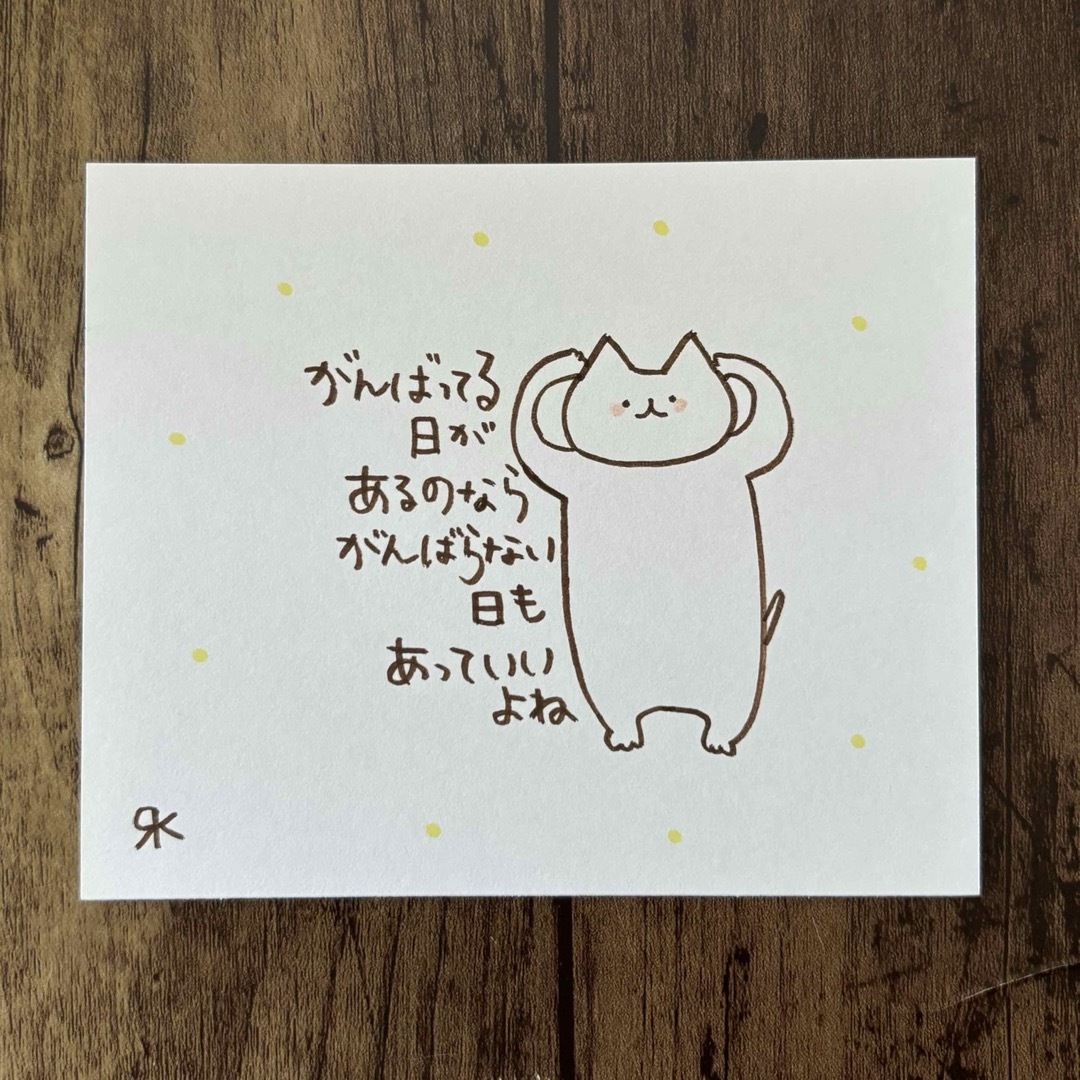 がんばってる
日が
あるのなら
がんばらない
日も
あっていい
よね
RK